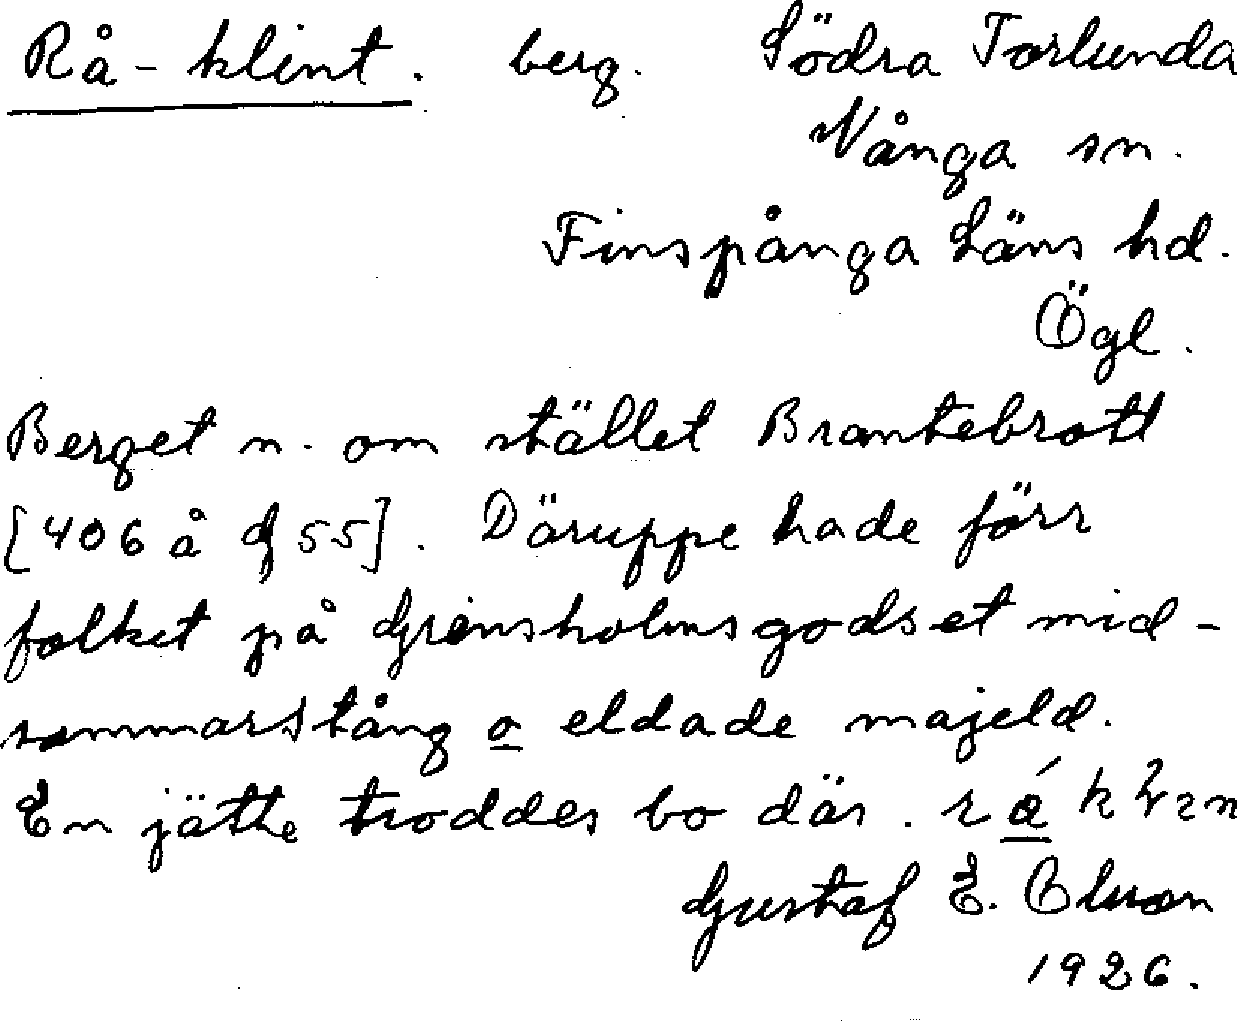 Rå-klint. berg. Södra Torlunda
Vånga sn.
Finspånga Läns hd.
Ögl.
Berget n. om stället Brantebrott
[406 å 55]. Däruppe hade förr
folket på Grensholmsgodset mid-
sommarstång o eldade majeld.
En jätte troddes bo där.
Gustaf E. Oluson
1926.